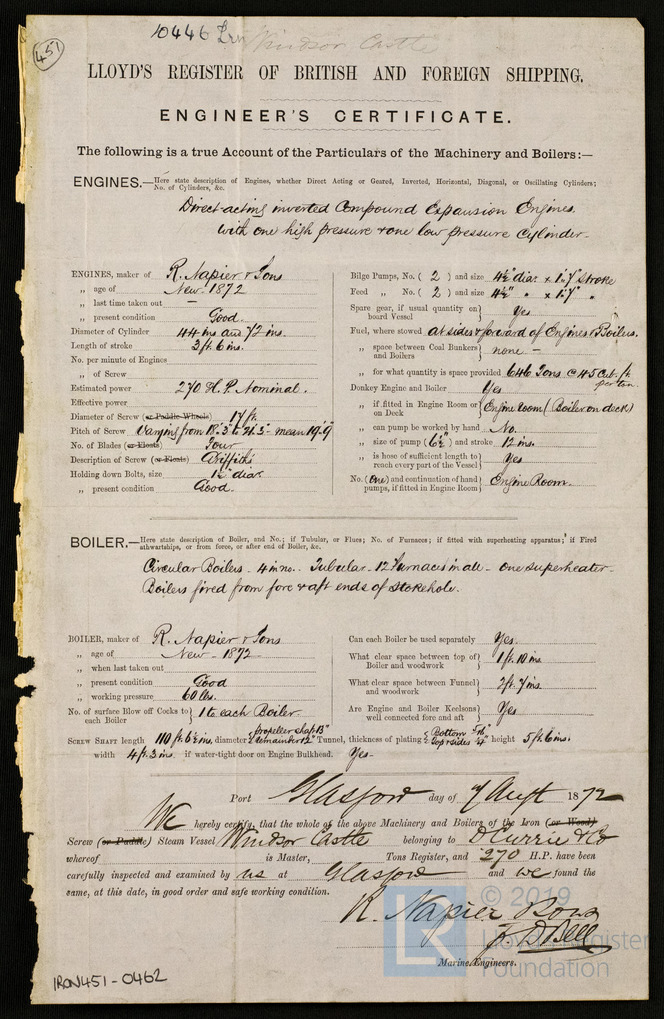 10446 Irn Windsor Castle
451
LLOYD'S REGISTER OF BRITISH AND FOREIGN SHIPPING.
ENGINEER'S CERTIFICATE.
The following is a true Account of the Particulars of the Machinery and Boilers:—
ENGINES.—Here state description of Engines, whether Direct Acting or Geared, Inverted, Horizontal, Diagonal, or Oscillating Cylinders;
No. of Cylinders, &c.
Direct-acting inverted Compound Expansion Engines.
With one high pressure & one low pressure Cylinder.
ENGINES, maker of R. Napier & Sons
„ age of New - 1872
„ last time taken out —
„ present condition Good.
Diameter of Cylinder 44 ins and 72 ins.
Length of stroke 3 ft. 6 ins.
No. per minute of Engines
„ of Screw
Estimated power 270 H.P. Nominal.
Effective power
Diameter of Screw (or Paddle Wheels) 17 ft.
Pitch of Screw Varying from 18'.3" to 21'.3" - mean 19'.9
No. of Blades (or Floats) Four
Description of Screw (or Floats) Griffiths
Holding down Bolts, size diar.
„ present condition Good.
Bilge Pumps, No. ( 2 ) and size 4½" diar. x 1'.7" stroke
Feed „ No. ( 2 ) and size 4½" „ x 1'.7" „
Spare gear, if usual quantity on board Vessel } Yes
Fuel, where stowed at sides & forward of Engines & Boilers.
„ space between Coal Bunkers and Boilers } none —
„ for what quantity is space provided 646 Tons @ 45 cub. ft. per ton.
Donkey Engine and Boiler Yes
„ if fitted in Engine Room or on Deck } Engine room (Boiler on deck)
„ can pump be worked by hand No.
„ size of pump (6½") and stroke 12 ins.
„ is hose of sufficient length to reach every part of the Vessel } Yes
No. (One) and continuation of hand pumps, if fitted in Engine Room } Engine Room.
BOILER.—Here state description of Boiler, and No.; if Tubular, or Flues; No. of Furnaces; if fitted with superheating apparatus; if Fired
athwartships, or from force, or after end of Boiler, &c.
Circular Boilers - 4 in no. - Tubular - 12 Furnaces in all - one superheater -
Boilers fired from fore & aft ends of stokehole.
BOILER, maker of R. Napier & Sons
„ age of New - 1872
„ when last taken out
„ present condition Good
„ working pressure 60 lbs.
No. of surface Blow off Cocks to each Boiler } 1 to each Boiler.
Can each Boiler be used separately Yes.
What clear space between top of Boiler and woodwork } 1 ft. 10 ins
What clear space between Funnel and woodwork } 2 ft. 7 ins.
Are Engine and Boiler Keelsons well connected fore and aft } Yes
SCREW SHAFT length 110 ft. 6½ ins, diameter { propeller shaft 13" remainder 12" Tunnel, thickness of plating { Bottom top & sides height 5 ft. 6 ins.
width 4 ft. 3 ins. if water-tight door on Engine Bulkhead. Yes-
Port Glasgow day of 7 Augt 1872
We hereby certify, that the whole of the above Machinery and Boilers of the Iron (or Wood)
Screw (or Paddle) Steam Vessel Windsor Castle belonging to D Currie & Co
whereof is Master, Tons Register, and 270 H.P. have been
carefully inspected and examined by us at Glasgow and we found the
same, at this date, in good order and safe working condition.
R. Napier & Sons
Bell
Marine Engineers.
LR
© 2019
Lloyd's Register
Foundation
IRON451-0462